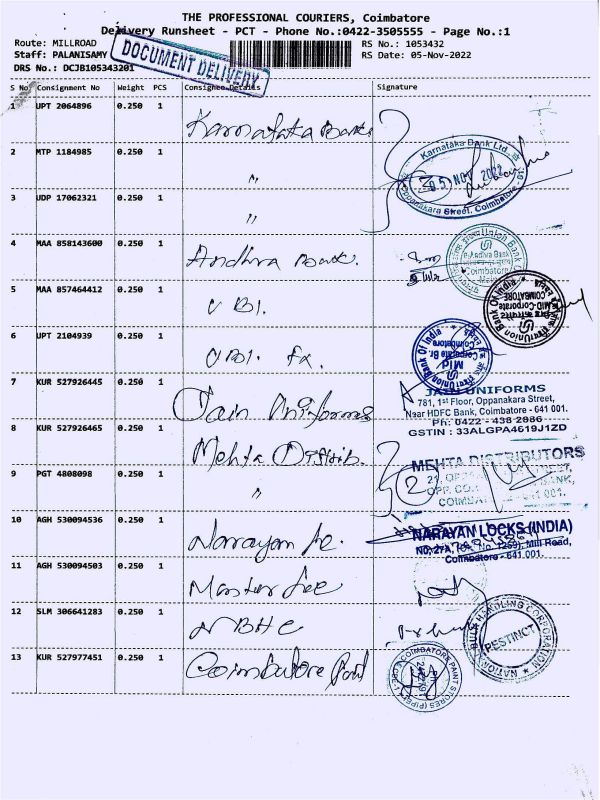 THE PROFESSIONAL COURIERS, Coimbatore
Delivery Runsheet - PCT - Phone No.:0422-3505555 - Page No.:1
Route: MILLROAD
RS No.: 1053432
Staff: PALANISAMY
RS Date: 05-Nov-2022
DRS No.: DCJB105343201
DOCUMENT DELIVERY
S No Consignment No Weight PCS Consignee Details Signature
1 UPT 2064896 0.250 1 Karnataka Bank
2 MTP 1184985 0.250 1 "
Karnataka Bank Ltd.
05 NOV 2022
Oppanakara Street, Coimbatore
3 UDP 17062321 0.250 1 "
4 MAA 858143600 0.250 1 Andhra Bank.
Union Bank
e-Andhra Bank
Coimbatore
5 MAA 857464412 0.250 1 UBI.
Union Bank Of India
MID-Corporate
COIMBATORE
6 UPT 2104939 0.250 1 UBI. Fx.
Union Bank Of India
Mid
Corporate Br.
Coimbatore
7 KUR 527926445 0.250 1 Jain Uniforms
JAIN UNIFORMS
781, 1st Floor, Oppanakara Street,
Near HDFC Bank, Coimbatore - 641 001.
Ph: 0422 - 438 2986
GSTIN : 33ALGPA4619J1ZD
8 KUR 527926465 0.250 1 Mehta Distrib.
MEHTA DISTRIBUTORS
9 PGT 4808098 0.250 1 "
2
10 AGH 530094536 0.250 1 Narayan
NARAYAN LOCKS (INDIA)
Mill Road,
Coimbatore - 641 001.
11 AGH 530094503 0.250 1 Master
12 SLM 306641283 0.250 1 NBHC
NATIONAL BULK HANDLING CORPORATION
PESTINCT
13 KUR 527977451 0.250 1 Coimbatore Paint
COIMBATORE PAINT STORES